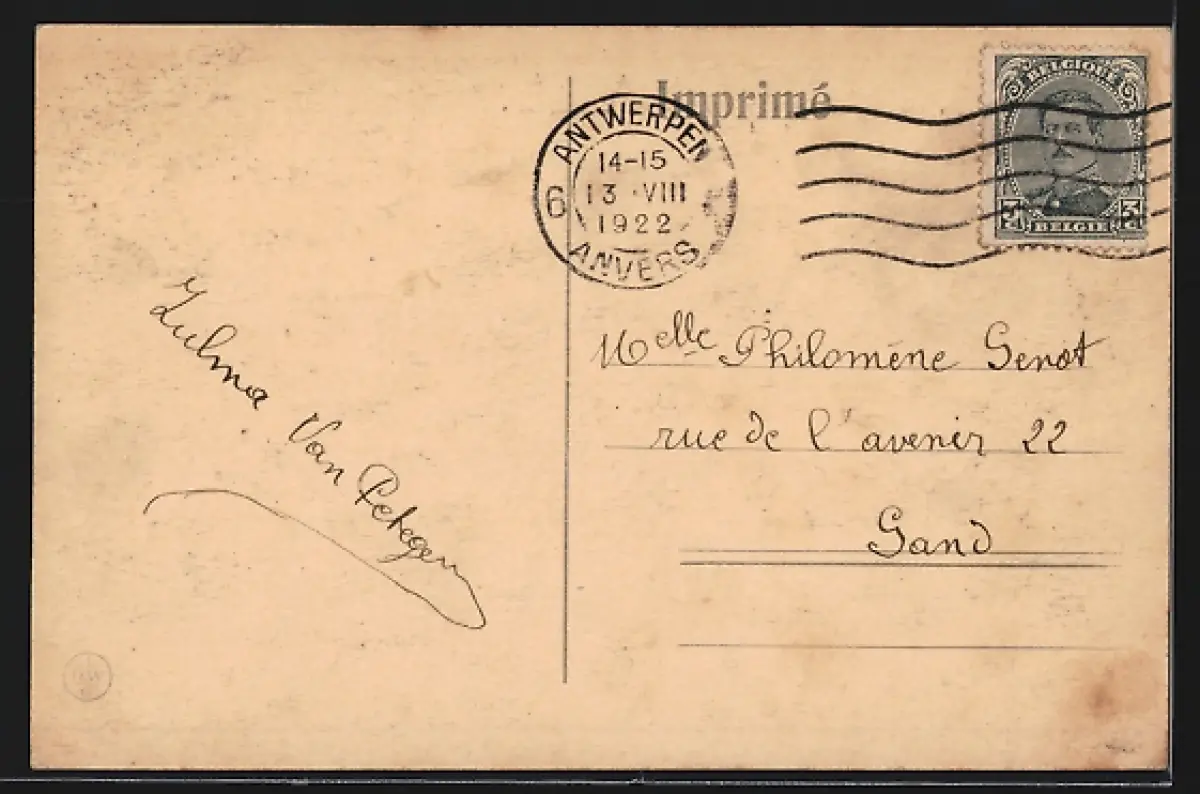 Imprimé
ANTWERPEN
14-15
13 VIII
1922
6
ANVERS
BELGIQUE
3 3
BELGIE
Melle Philomène Genot
rue de l'avenir 22
Gand
Zulma Van Petegem